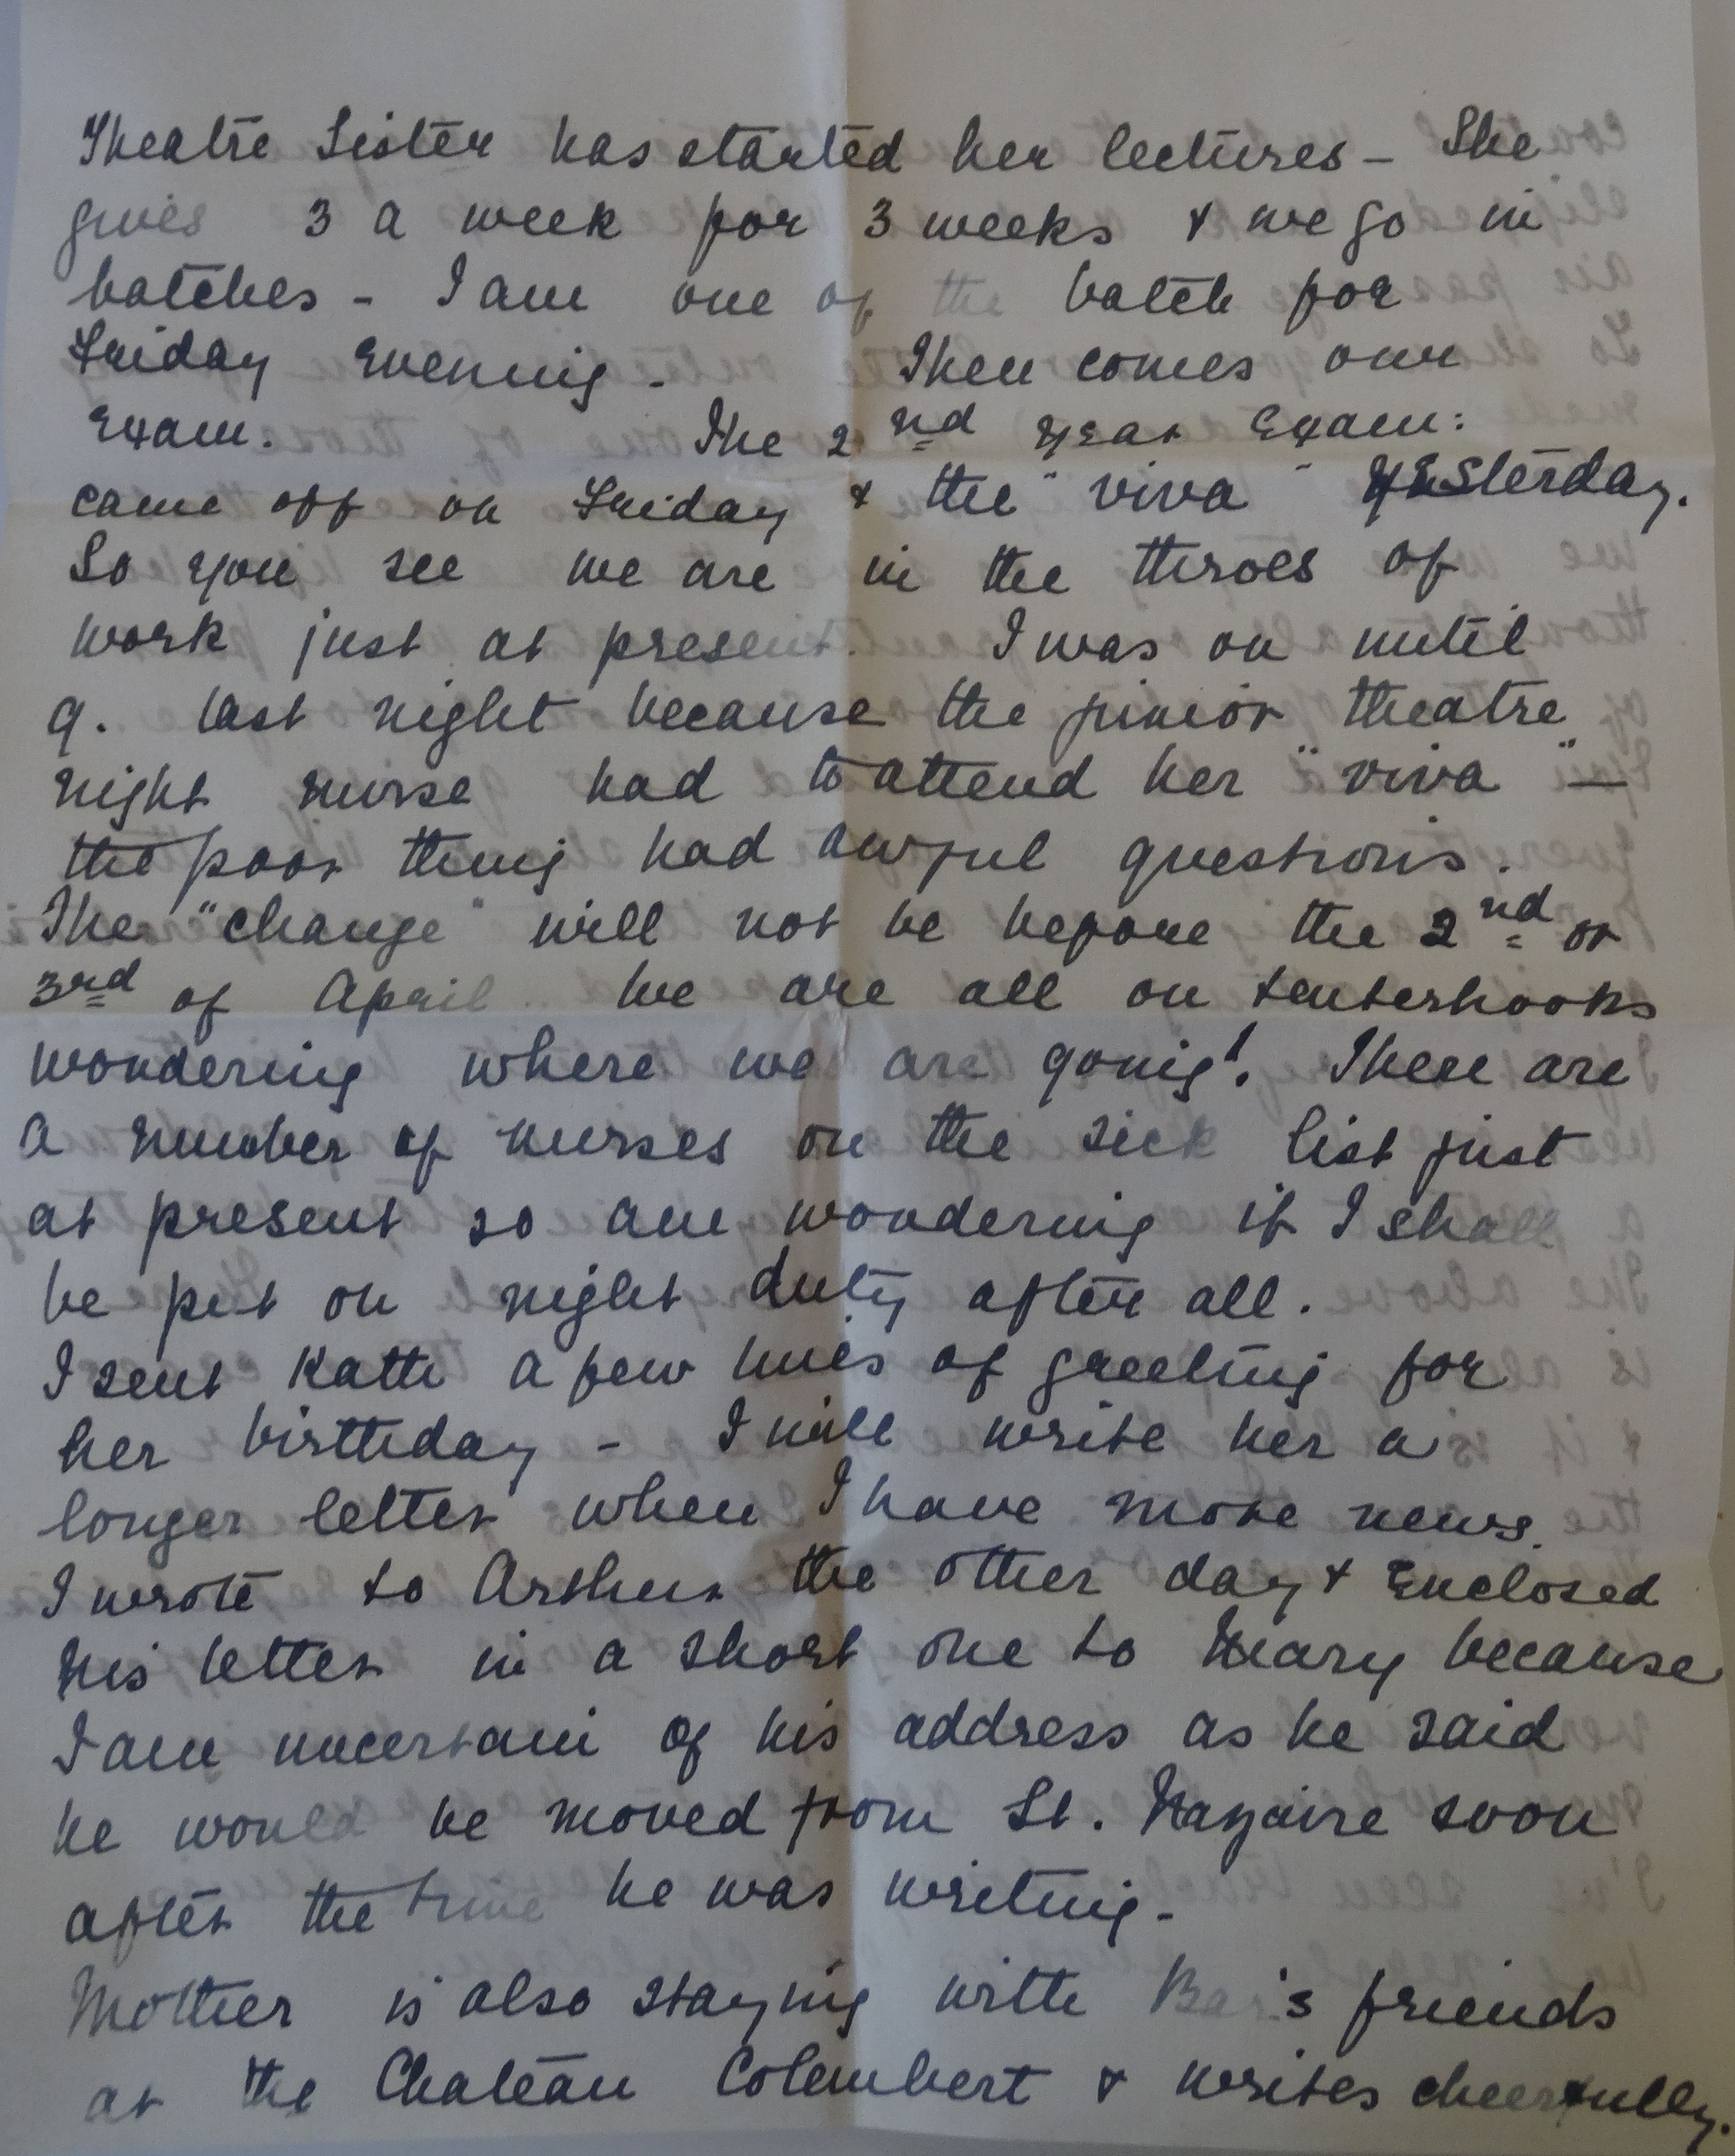 Theatre Sister has started her lectures - She
gives 3 a week for 3 weeks & we go in
batches - I am one of the batch for
Friday Evening - Then comes our
Exam. The 2nd year Exam:
came off on Friday & the "viva" Yesterday.
So you see we are in the throes of
work just at present. I was on until
9. last night because the junior theatre
night nurse had to attend her "viva" -
the poor thing had awful questions.
The "change" will not be before the 2nd or
3rd of April. We are all on tenterhooks
wondering where we are going! There are
a number of nurses on the sick list just
at present so am wondering if I shall
be put on night duty after all.
I sent Kath a few lines of greeting for
her birthday - I will write her a
longer letter when I have more news.
I wrote to Arthur the other day & Enclosed
his letter in a short one to Mary because
I am uncertain of his address as he said
he would be moved from St. Nazaire soon
after the time he was writing -
Mother is also staying with friends
at the Chateau Colembert & writes cheerfully.